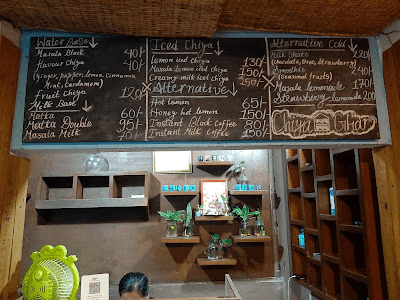 Water Base
Masala Black 40/-
flavour Chiya 40/-
(Ginger, pepper, lemon, Cinnamon
Mint, Cardamom)
Fruit Chiya 120/-
Milk Base
Matka 60/-
Matka Double 95/-
Masala Milk 70/-
Iced Chiya
Lemon iced chiya 130/-
Masala Lemon iced chiya 150/-
Creamy milk iced chiya 250/-
Alternative
Hot Lemon 65/-
Honey hot lemon 110/-
Instant Black Coffee 80/-
Instant Milk Coffee 150/-
Alternative Cold
Milk Shake 220/-
(chocolate, Oreo, Strawberry)
Smoothie 240/-
(Seasonal fruits)
Masala Lemonade 170/-
Strawberry lemonade 200
Chiya Ghar